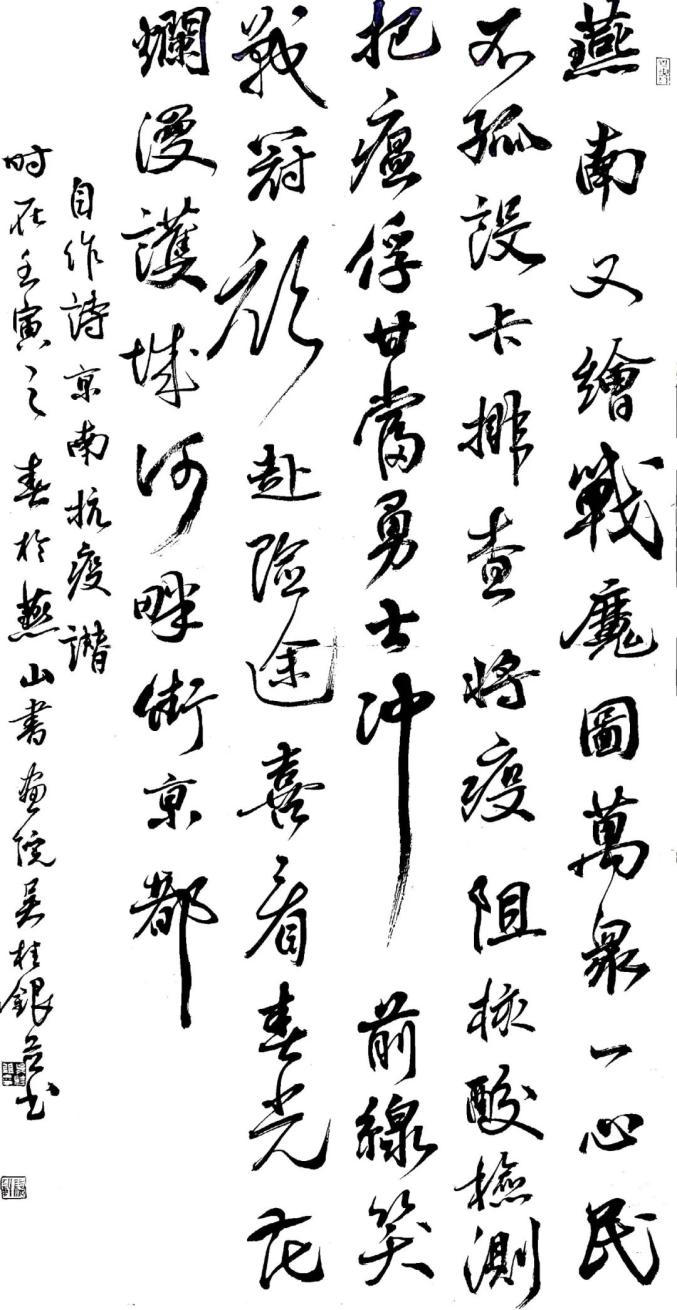 燕南又繪戰魔圖萬衆一心民
不孤設卡排查將疫阻核酸檢測
把瘟俘甘當勇士冲前線笑
戰冠顏赴險途喜看春光花
爛漫護城河畔街京都
自作詩京南抗疫譜
時在壬寅之春於燕山書畫院吴桂銀并书